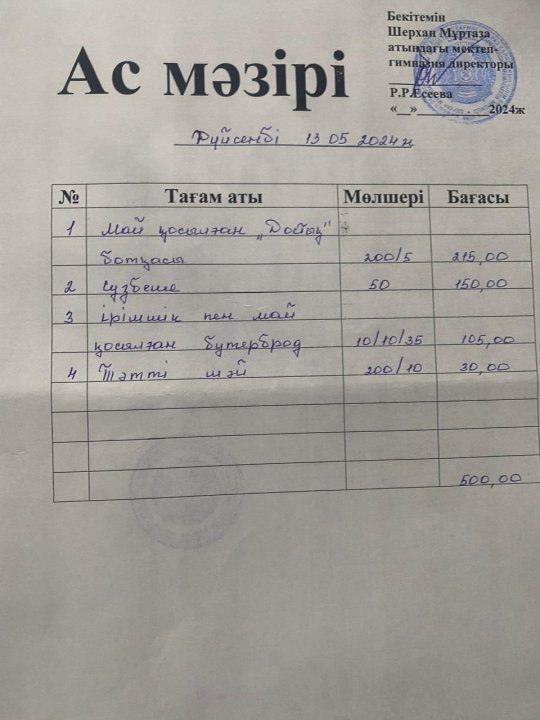 Бекітемін
Шерхан Мұртаза
атындағы мектеп-
гимназия директоры
Р.Р.Есеева
«__»___________2024ж
Ас мәзірі
Дүйсенбі 13 05 2024 ж
№ Тағам аты Мөлшері Бағасы
1 Май қосылған „Достық"
ботқасы 200/5 215,00
2 Сүзбеше 50 150,00
3 ірімшік пен май
қосылған бутерброд 10/10/35 105,00
4 Тәтті шәй 200/10 30,00
500,00